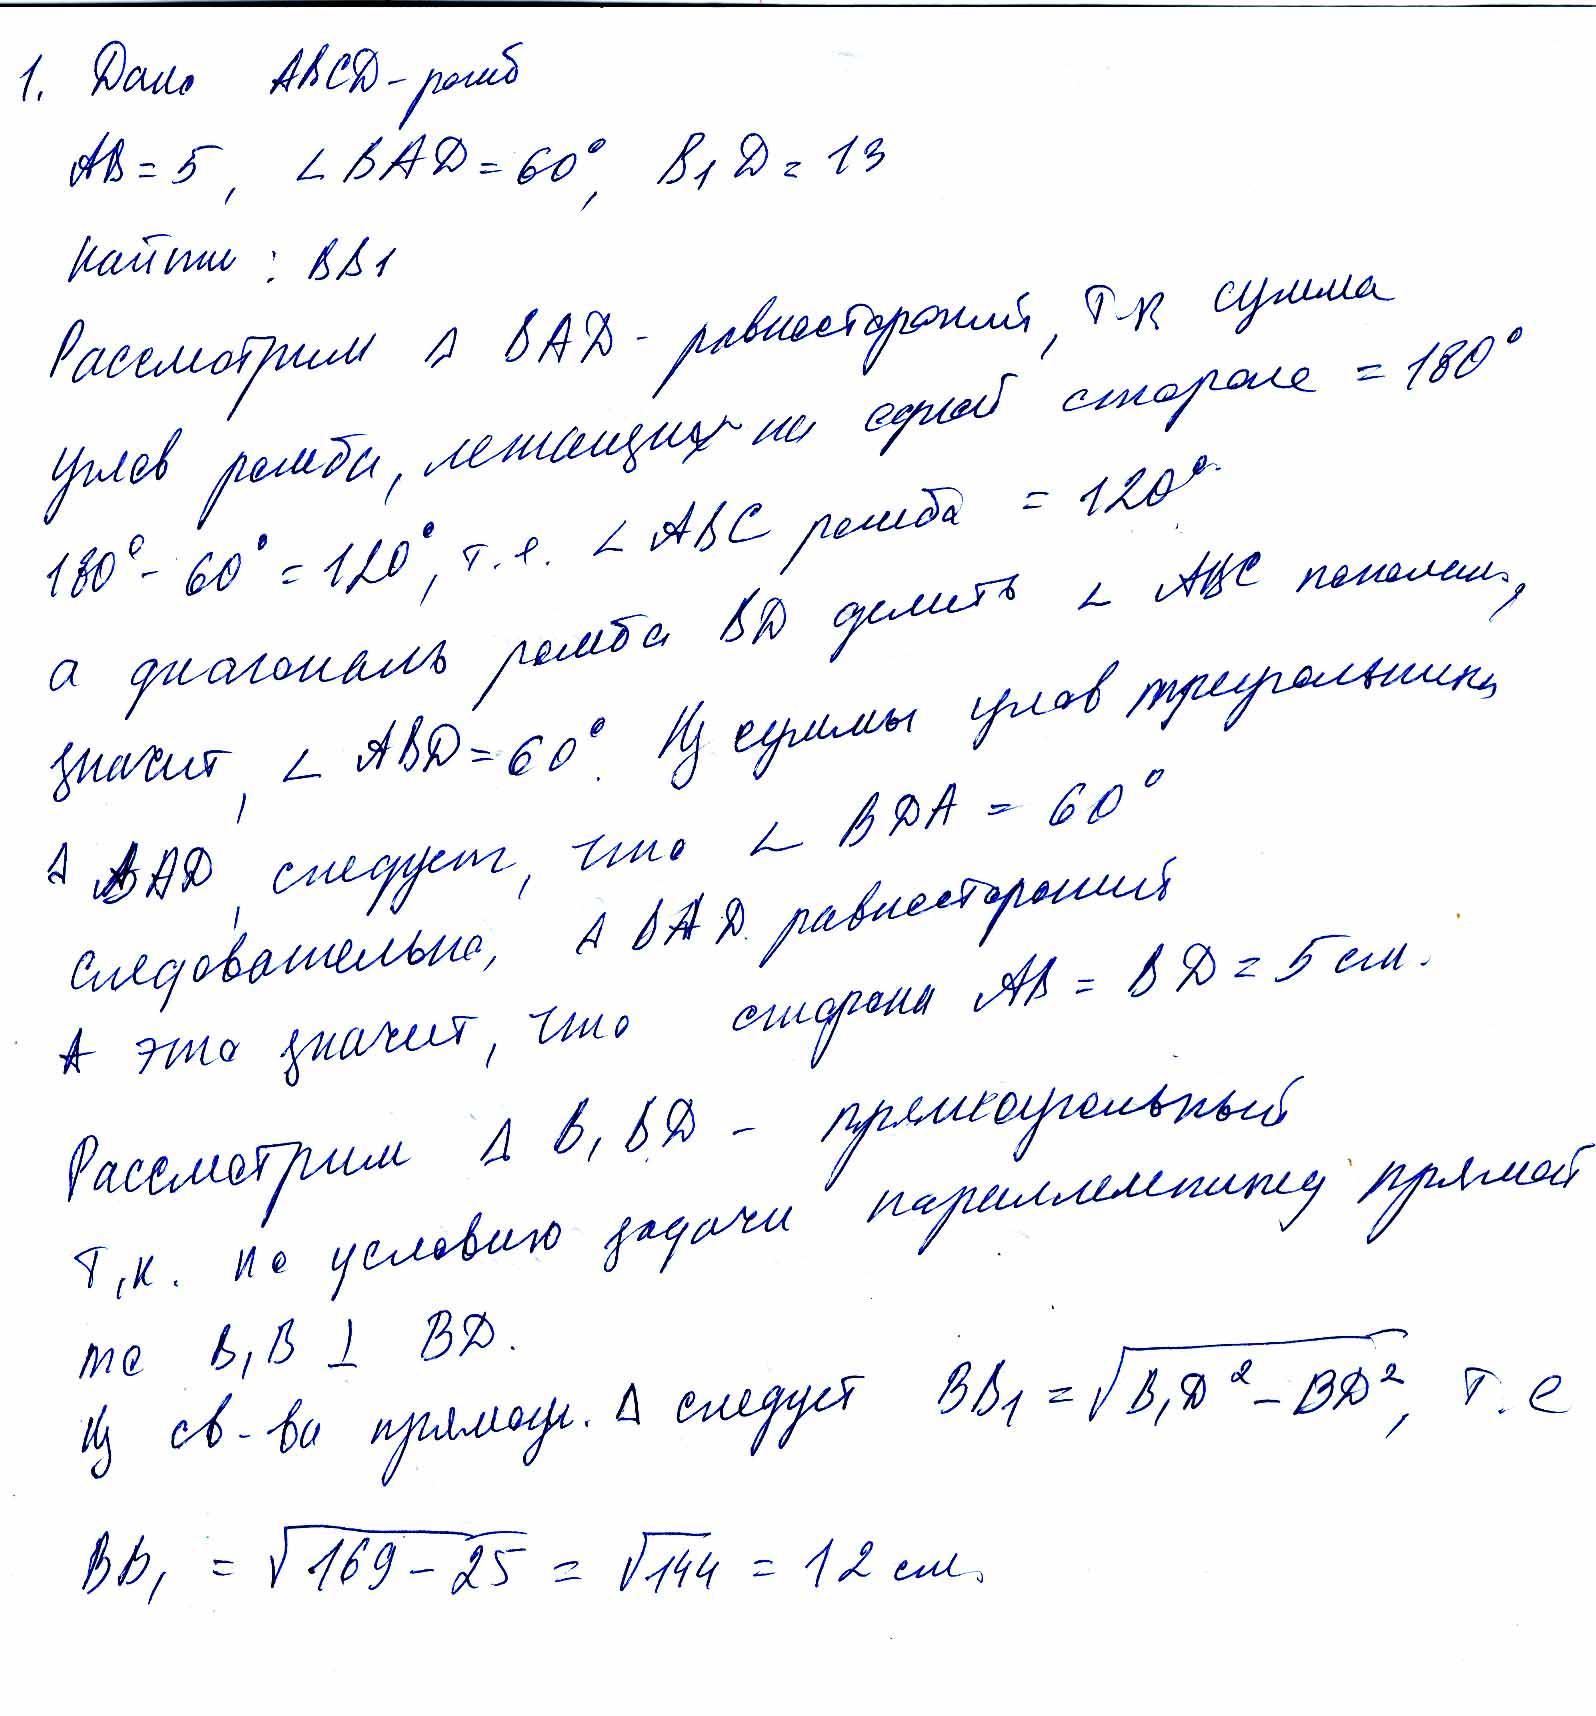 1. Дано ABCD - ромб
AB = 5, ∠ BAD = 60°, B1D = 13
Найти : BB1
Рассмотрим Δ BAD - равносторонний, т.к сумма
углов ромба, лежащих на одной стороне = 180°
180° - 60° = 120°, т.е. ∠ ABC ромба = 120°
а диагональ ромба BD делить ∠ ABC пополам,
значит, ∠ ABD = 60°. Из суммы углов треугольника
Δ BAD, следует, что ∠ BDA = 60°
следовательно, Δ BAD равносторонний
А это значит, что сторона AB = BD = 5 см.
Рассмотрим Δ B1BD - прямоугольный
Т.к. по условию задачи параллелепипед прямой
то B1B ⊥ BD.
Из св-ва прямоуг. Δ следует BB1 = √B1D² - BD², т.е
BB1 = √169 - 25 = √144 = 12 см.